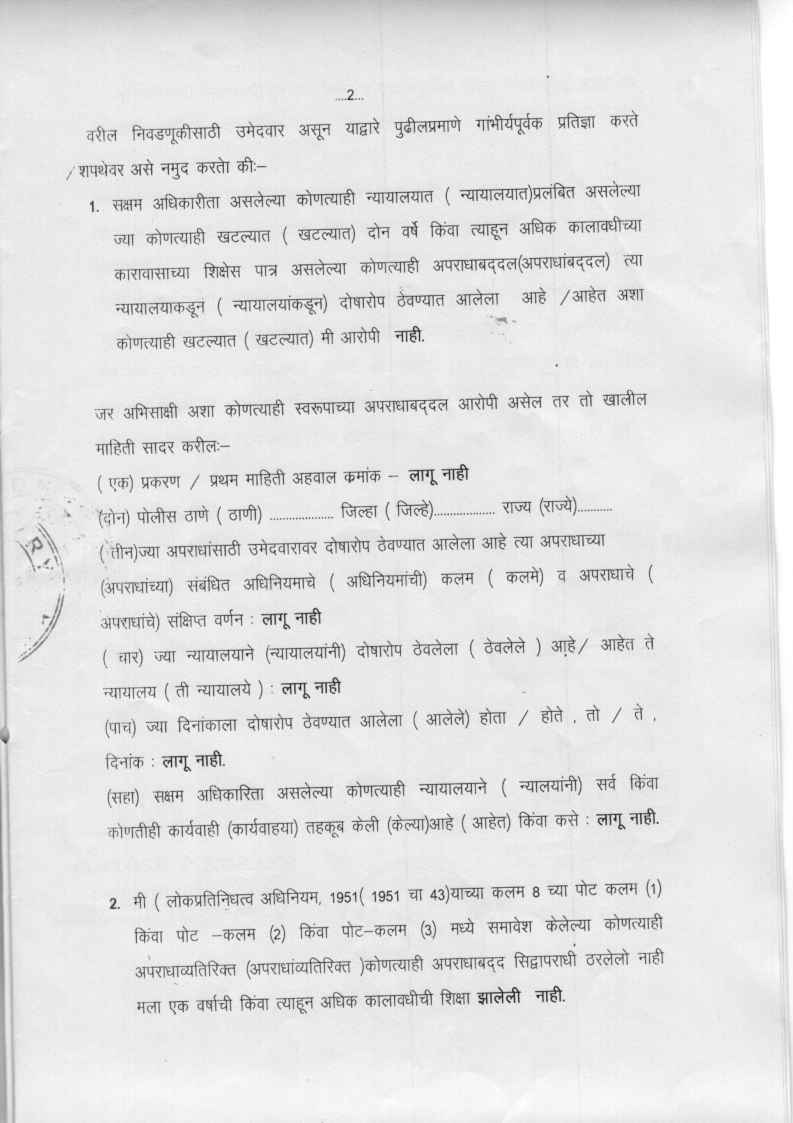 ....2...
वरील निवडणूकीसाठी उमेदवार असून याद्वारे पुढीलप्रमाणे गांभीर्यपूर्वक प्रतिज्ञा करते
/शपथेवर असे नमुद करतेा कीः–
1. सक्षम अधिकारीता असलेल्या कोणत्याही न्यायालयात ( न्यायालयात)प्रलंबित असलेल्या
ज्या कोणत्याही खटल्यात ( खटल्यात) दोन वर्षे किंवा त्याहून अधिक कालावधीच्या
कारावासाच्या शिक्षेस पात्र असलेल्या कोणत्याही अपराधाबद्दल(अपराधांबद्दल) त्या
न्यायालयाकडून ( न्यायालयांकडून) दोषारोप ठेवण्यात आलेला आहे /आहेत अशा
कोणत्याही खटल्यात ( खटल्यात) मी आरोपी नाही.
जर अभिसाक्षी अशा कोणत्याही स्वरूपाच्या अपराधाबद्दल आरोपी असेल तर तो खालील
माहिती सादर करीलः–
( एक) प्रकरण / प्रथम माहिती अहवाल क्रमांक – लागू नाही
(दोन) पोलीस ठाणे ( ठाणी) .................... जिल्हा ( जिल्हे)................... राज्य (राज्ये)...........
( तीन)ज्या अपराधांसाठी उमेदवारावर दोषारोप ठेवण्यात आलेला आहे त्या अपराधाच्या
(अपराधांच्या) संबंधित अधिनियमाचे ( अधिनियमांची) कलम ( कलमे) व अपराधाचे (
अपराधांचे) संक्षिप्त वर्णन : लागू नाही
( चार) ज्या न्यायालयाने (न्यायालयांनी) दोषारोप ठेवलेला ( ठेवलेले ) आहे/ आहेत ते
न्यायालय ( ती न्यायालये ) : लागू नाही
(पाच) ज्या दिनांकाला दोषारोप ठेवण्यात आलेला ( आलेले) होता / होते , तो / ते ,
दिनांक : लागू नाही.
(सहा) सक्षम अधिकारिता असलेल्या कोणत्याही न्यायालयाने ( न्यालयांनी) सर्व किंवा
कोणतीही कार्यवाही (कार्यवाहया) तहकूब केली (केल्या)आहे ( आहेत) किंवा कसे : लागू नाही.
2. मी ( लोकप्रतिनिधत्व अधिनियम, 1951( 1951 चा 43)याच्या कलम 8 च्या पोट कलम (1)
किंवा पोट –कलम (2) किंवा पोट–कलम (3) मध्ये समावेश केलेल्या कोणत्याही
अपराधाव्यतिरिक्त (अपराधांव्यतिरिक्त )कोणत्याही अपराधाबद्द सिद्वापराधी ठरलेलो नाही
मला एक वर्षाची किंवा त्याहून अधिक कालावधीची शिक्षा झालेली नाही.